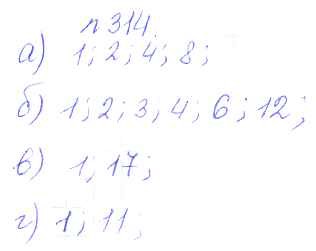 п 314.
а) 1; 2; 4; 8;
б) 1; 2; 3; 4; 6; 12;
в) 1; 17;
г) 1; 11;